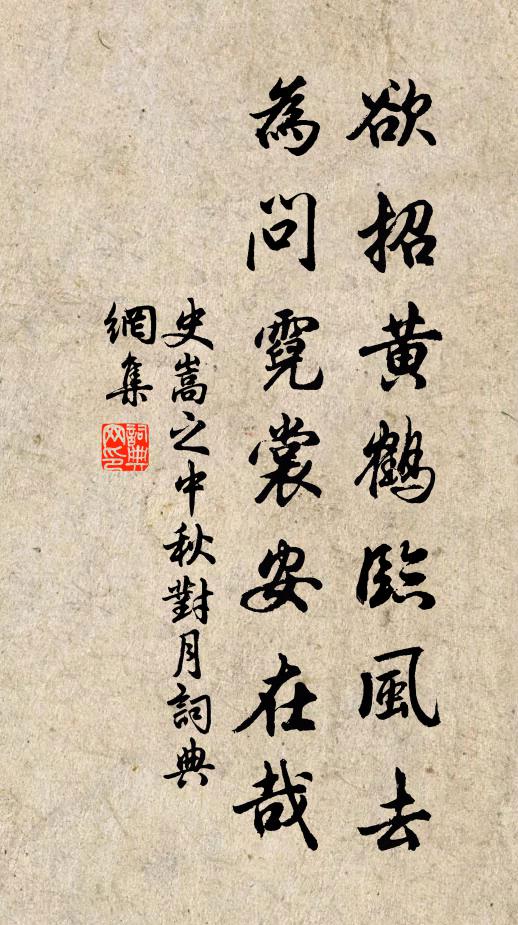 欲招黄鶴臨風去
為問霓裳安在哉
史嵩之中秋對月詞典
網集
詞典
网印